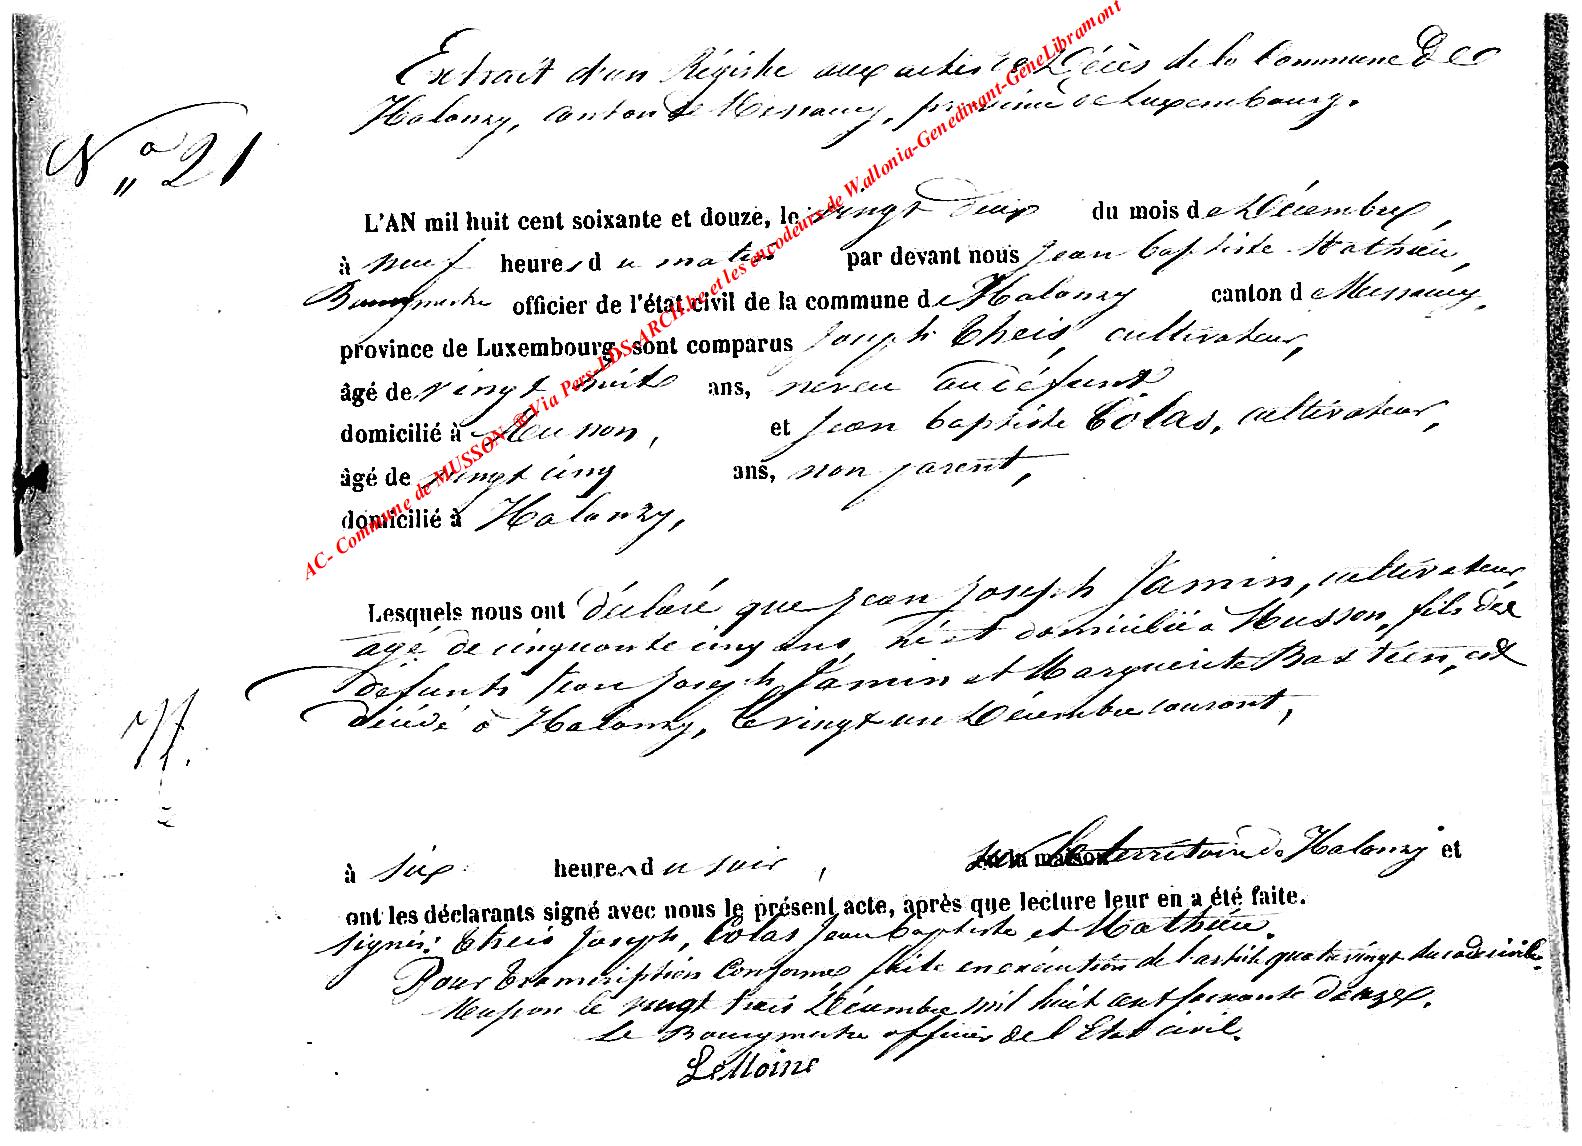 Extrait d'un Régistre aux actes de Décès de la Commune de
Halanzy, canton de Messancy, province de Luxembourg.
N° 21
L'AN mil huit cent soixante et douze, le vingt deux du mois de Décembre,
à neuf heures du matin par devant nous Jean baptiste Mathieu,
Bourgmestre officier de l'état civil de la commune de Halanzy canton de Messancy,
province de Luxembourg sont comparus Joseph Theis, cultivateur,
âgé de vingt huit ans, neveu au défunt
domicilié à Musson, et Jean baptiste Colas, cultivateur,
âgé de vingt cinq ans, non parent,
domicilié à Halanzy,
Lesquels nous ont déclaré que Jean Joseph Jamin, cultivateur,
agé de cinquante cinq ans, né et domicilié à Musson, fils de
défunts Jean Joseph Jamin et Marguerite Bastien, est
décédé à Halanzy, le vingt un Décembre courant,
à six heures du soir, sur le territoire de Halanzy et
ont les déclarants signé avec nous le présent acte, après que lecture leur en a été faite.
signés: Theis Joseph, Colas Jean baptiste et Mathieu.
Pour transcription conforme faite en exécution de l'article quatre vingt du code civil.
Musson le vingt trois Décembre mil huit cent soixante douze.
Le Bourgmestre officier de l'Etat civil.
LeMoine
AC- Commune de MUSSON ® Via Pers-LDS-ARCH.be et les encodeurs de Wallonia-Genedinant-GeneLibramont